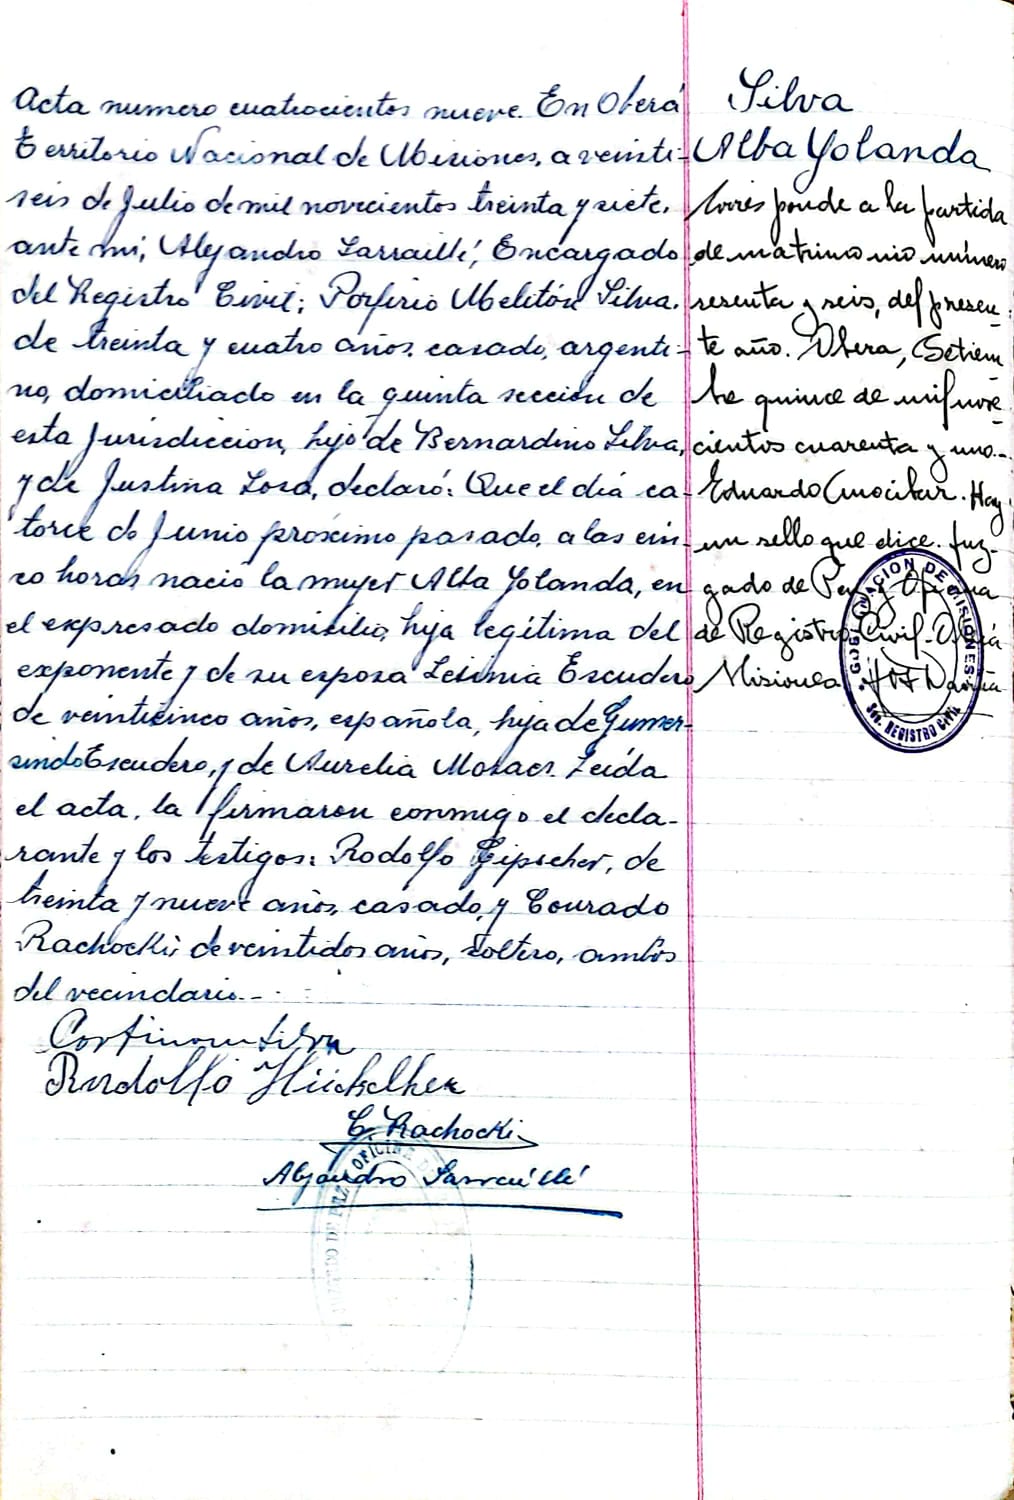 Acta numero cuatrocientos nueve. En Oberá
Territorio Nacional de Misiones, a veinti-
seis de Julio de mil novecientos treinta y siete,
ante mi, Alejandro Larraillé, Encargado
del Registro Civil; Porfirio Melitón Silva,
de treinta y cuatro años, casado, argenti-
no, domiciliado en la quinta sección de
esta Jurisdiccion, hijo de Bernardino Silva,
y de Justina Sosa, declaró: Que el día ca-
torce de Junio próximo pasado, a las cin-
co horas nació la mujer Alba Yolanda, en
el expresado domicilio, hija legítima del
exponente y de su esposa Escudero
de veinticinco años, española, hija de Gumer-
sindo Escudero, y de Aurelia Leída
el acta, la firmaron conmigo el decla-
rante y los testigos: Rodolfo de
treinta y nueve años, casado, y Conrado
Rachocki, de veintidos años, soltero, ambos
del vecindario.-
Silva
Rudolfo
C. Rachocki
Alejandro Larraillé
OFICINA
JUZGADO DE PAZ
Silva
Alba Yolanda
Corresponde a la partida
de matrimonio número
sesenta y seis, del presen-
te año. Obera, Setiem-
bre quince de mil nove-
cientos cuarenta y uno.-
Eduardo Hay
un sello que dice. Juz-
gado de Paz y Oficina
de Registro Civil-Oberá
Misiones
GOBERNACION DE MISIONES
REGISTRO CIVIL